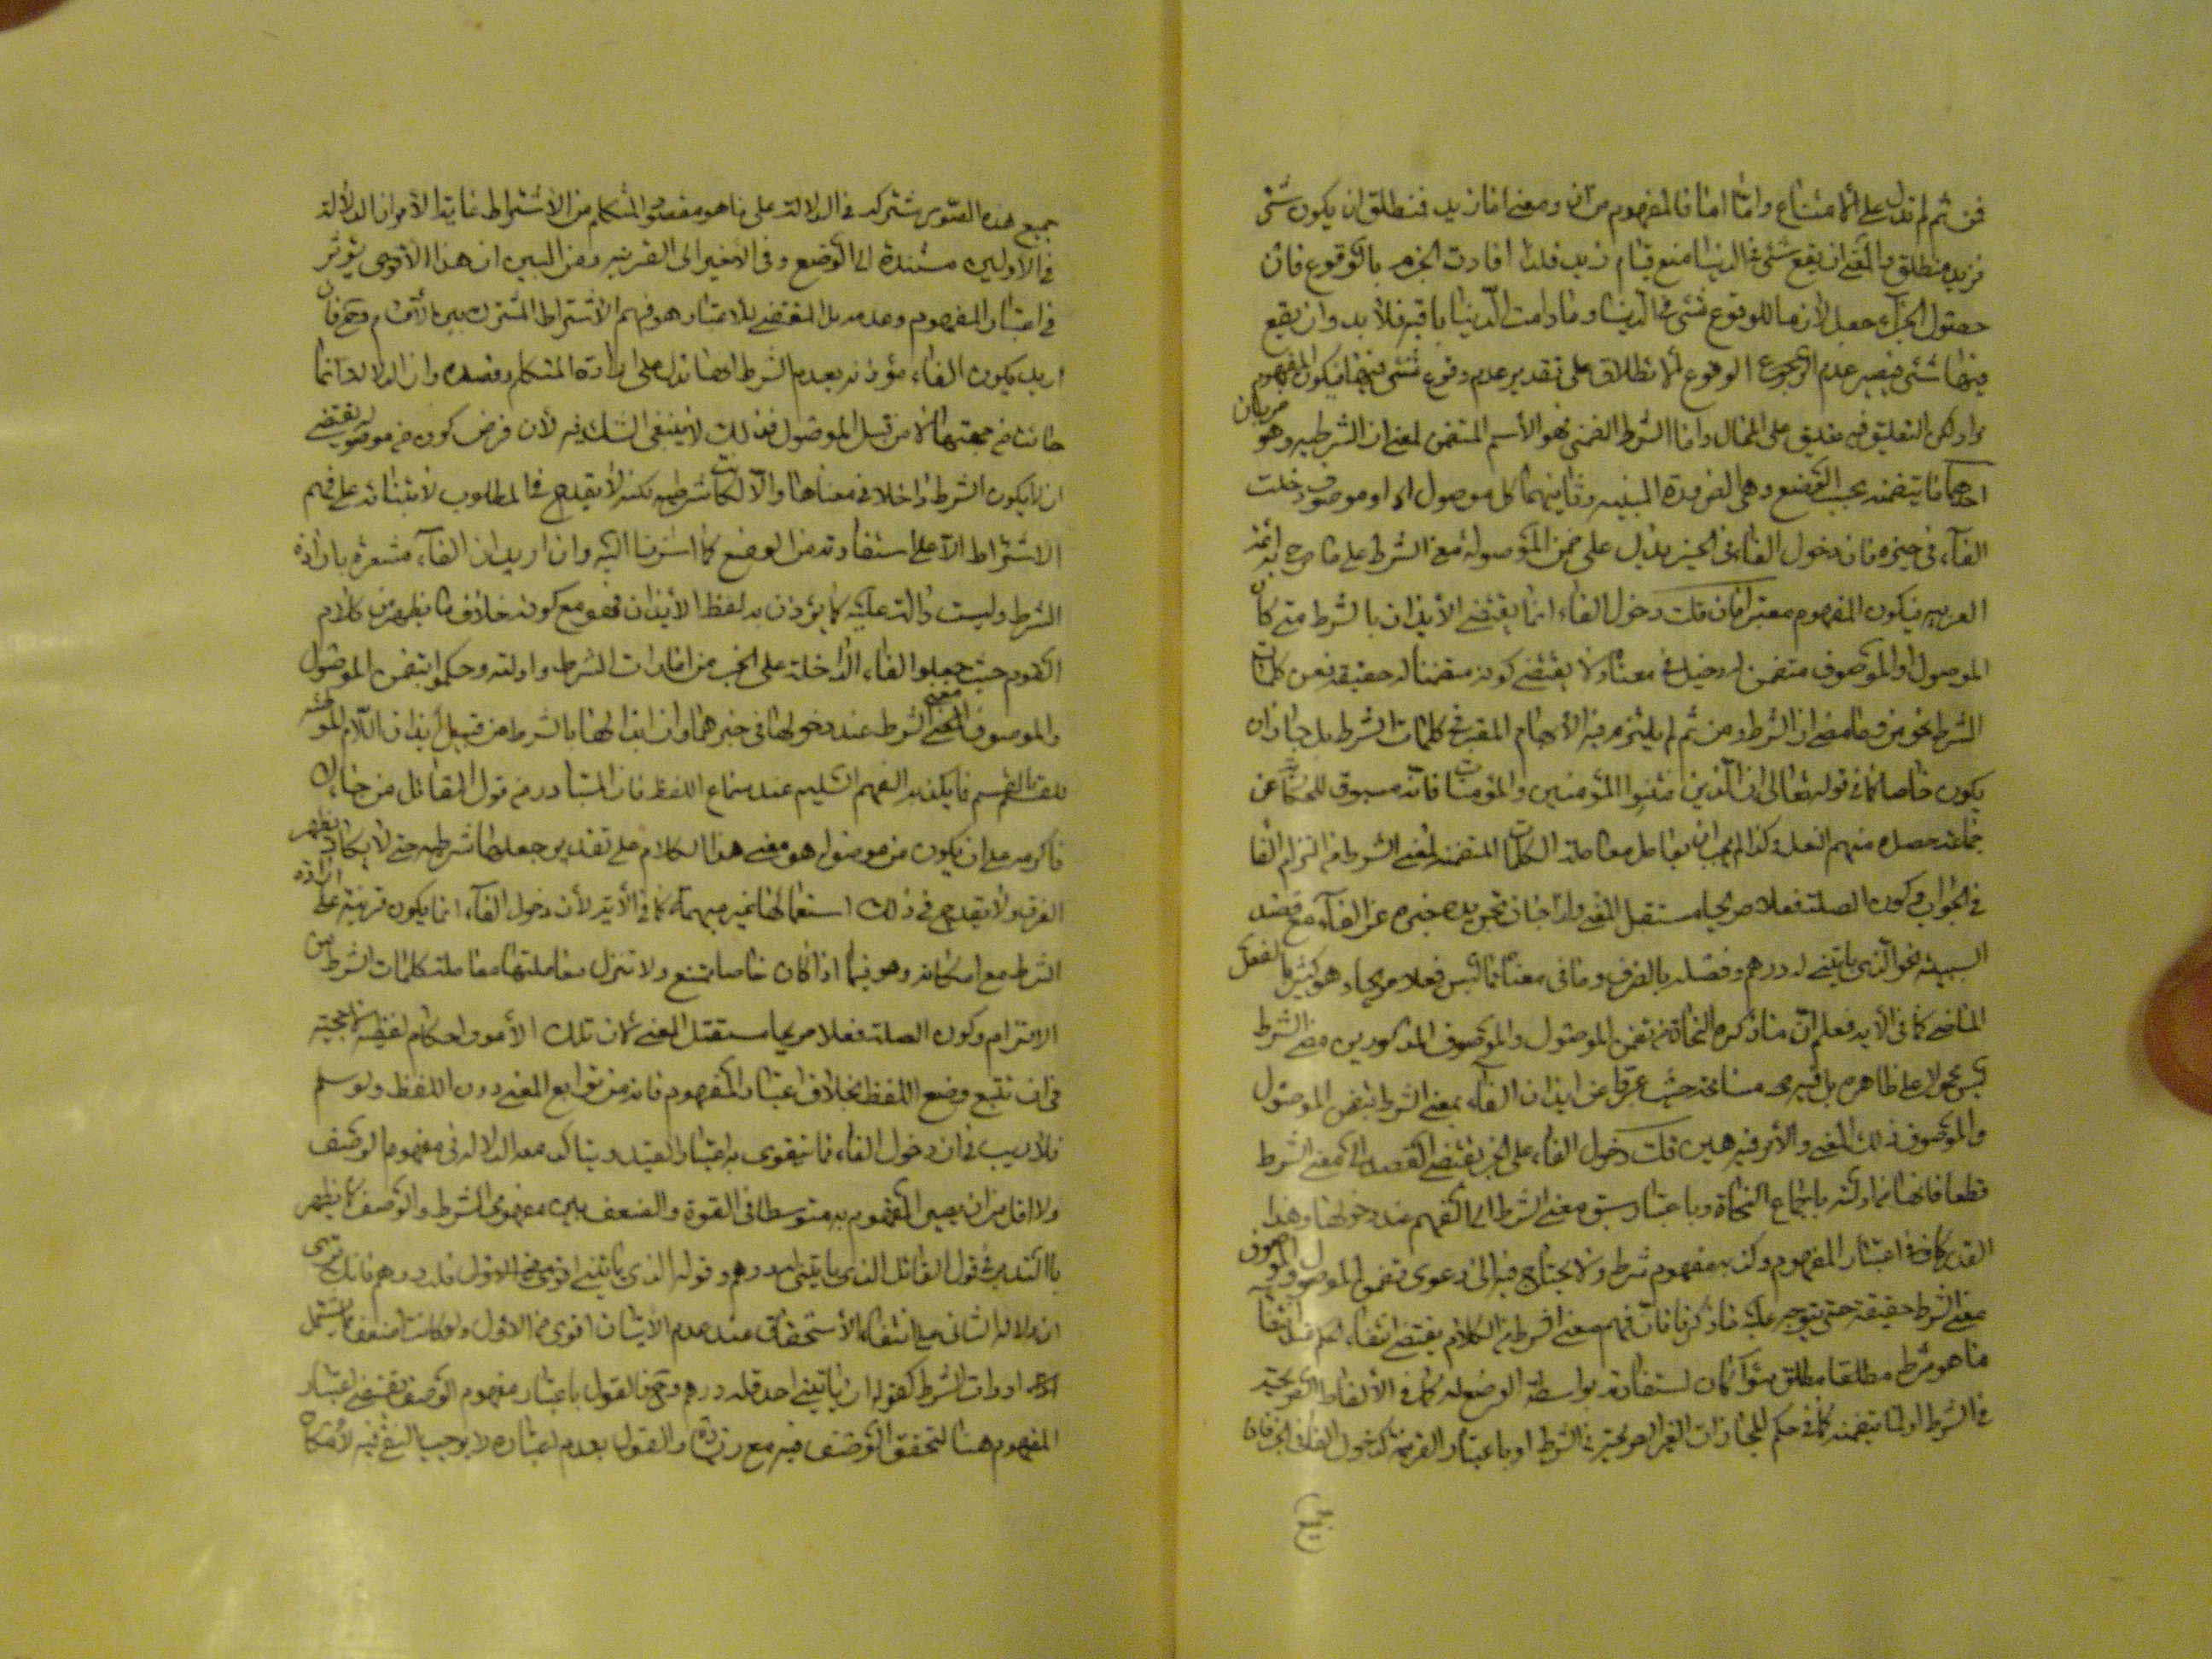 فمن ثم لم تدل على الامتناع واما اما فالمفهوم من ان ومعنى اما زيد فمنطلق ان يكون شئ
فزيد منطلق والمعنى ان يقع شئ في الدنيا منع قيام زيد قلت افادت الجزم بالوقوع فان
حصول الجزاء جعل لازما للوقوع شئ في الدنيا وما دامت الدنيا باقية فلا بد وان يقع
فيها شئ فيصير عدم الوقوع لانطلاق على تقدير عدم وقوع شئ فيها فيكون المفهوم
مرادا لكن التعليق فيه تعليق على المحال واما الشرط الضمني فهو الاسم المتضمن لمعنى ان الشرطيه وهو ضربان
احدهما ما يتضمنه بحسب الوضع وهي المبنيه وثانيهما كل موصول او موصوف دخلت
الفاء في خبره فان دخول الفاء في الخبر يدل على ضمن الموصول معنى الشرط على ما صرح به ائمة
العربيه فيكون المفهوم معتبرا فان قلت دخول الفاء انما يقتضي الايذان بالشرط متى كان
الموصول او الموصوف متضمن له دخيل في معناه لا يقتضي كونه متضمنا له حقيقة نعن كلمات
الشرط نحو من وما معنى ان الشرط ومن ثم لم يلتزم فيه الابهام المقرر في كلمات الشرط بل جاز ان
يكون خاصا كما في قوله تعالى ان الذين فتنوا المؤمنين والمؤمنات فانه مسبوق للحكاية عن
جماعة حصل منهم الفعل وكذا لم يجب ان يعامل معاملة الكلمات المتضمنة لمعنى الشرط من التزام الفاء
في الجواب وكون الصلة فعلا صريحا مستقبل المعنى ولذا جاز تجريد خبره عن الفاء مع قصد
السببية نحو الذي ياتيني له درهم وفصله بالظرف وما في معناه مما ليس فعلا صريحا وهو كثير بالفعل
الماضي كما في الآية فعلم ان ما ذكره النحاة من تضمن الموصول والموصوف المذكورين معنى الشرط
ليس محمولا على ظاهره بل فيه مسامحة حيث عبروا عن ايذان الفاء بمعنى الشرط بتضمن الموصول
والموصوف ذلك المعنى والامر فيه هين قلت دخول الفاء على الخبر يقتضي القصد الى معنى الشرط
قطعا فانها اماراته باجماع النحاة وباعتبار سبق معنى الشرط الى الفهم عند دخولها وهذا
القدر كاف في اعتبار المفهوم وكونه مفهوم شرط ولا يحتاج فيه الى دعوى تضمن الموصول والموصوف
معنى الشرط حقيقة حتى يتوجه عليه ما ذكر فان فهم معنى الشرط من الكلام يقتضي انتفاء الحكم عند انتفاء
ما هو شرط مطلقا سواء كان استفادته بواسطة الوضع له كما في الالفاظ الصريحة
في الشرط او لما يتضمنه كما في حكم المجازات الغير الصريحة في الشرط او باعتبار القرينة كدخول الفاء في الخبر فان
جميع
جميع هذه الصور مشتركه في الدلالة على ما هو مقصود المتكلم من الاشتراط غاية الامر ان الدلالة
في الاولين مستندة الى الوضع وفي الاخير الى القرينه ومن البين ان هذا الامر لا يؤثر
في اعتبار المفهوم وعدمه بل المقتضي للاعتبار هو فهم الاشتراط المشترك بين الاقسام وح فان
اريد بكون الفاء مؤذنه بعدم الشرط انها تدل على ارادة المتكلم وقصده وان الدلالة انما
كانت من جهتها لا من قبل الموصول فذلك لا ينبغي الشك فيه لان فرض كون من موصولا يقتضي
ان لا يكون الشرط داخلا في معناها والا لكانت شرطيه لكنه لا يقدح في المطلوب لابتنائه على فهم
الاشتراط لا على استفادته من الوضع كما اشرنا اليه وان اريد ان الفاء مشعرة بارادة
الشرط وليست دالة عليه كما يؤذن به لفظ الايذان فهو مع كونه خلاف ما يظهر من كلام
القوم حيث جعلوا الفاء الداخلة على الخبر من امارات الشرط وادلته وحكموا بتضمن الموصول
والموصوف معنى الشرط عند دخولها في خبرهما وان ايذانها بالشرط من قبيل ايذان اللام الموطئه
للقسم بالقسم مما يكذبه الفهم السليم عند سماع اللفظ فان المتبادر من قول القائل من جاءك
فاكرمه على ان يكون من موصوله هو معنى هذا الكلام على تقدير جعلها شرطيه حتى لا يكاد يظهر
الفرق ولا يقدح في ذلك استعمالها غير مبهمة كما في الآية لان دخول الفاء انما يكون قرينة على ارادة
الشرط مع امكانه وهو فيما اذا كان خاصا ممتنع ولا تنزل معاملتها معاملة كلمات الشرط من
الالتزام وكون الصلة فعلا صريحا مستقبل المعنى لان تلك الامور احكام لفظية لا حجية
في ان تتبع وضع اللفظ بخلاف اعتبار المفهوم فانه من توابع المعنى دون اللفظ ولو سلم
فلا ريب في ان دخول الفاء مما يتقوى به اعتبار القيد ويتاكد معه الدلاله في مفهوم الوصف
ولا اقل من ان يصير المفهوم به متوسطا في القوة والضعف بين مفهومي الشرط والوصف كما يظهر
بالتدبر في قول القائل الذي ياتيني له درهم وقوله الذي ياتيني فله درهم فانك ترى
ان دلالة الثاني على انتفاء الاستحقاق عند عدم الاتيان اقوى من الاول ولو كانت اضعف مما يشتمل
على ادوات الشرط كقوله ان ياتيني احد فله درهم وح فالقول باعتبار مفهوم الوصف يقتضي اعتبار
المفهوم هنا لتحقق الوصف فيه مع زيادة والقول بعدم اعتباره لا يوجب النفي فيه لامكان